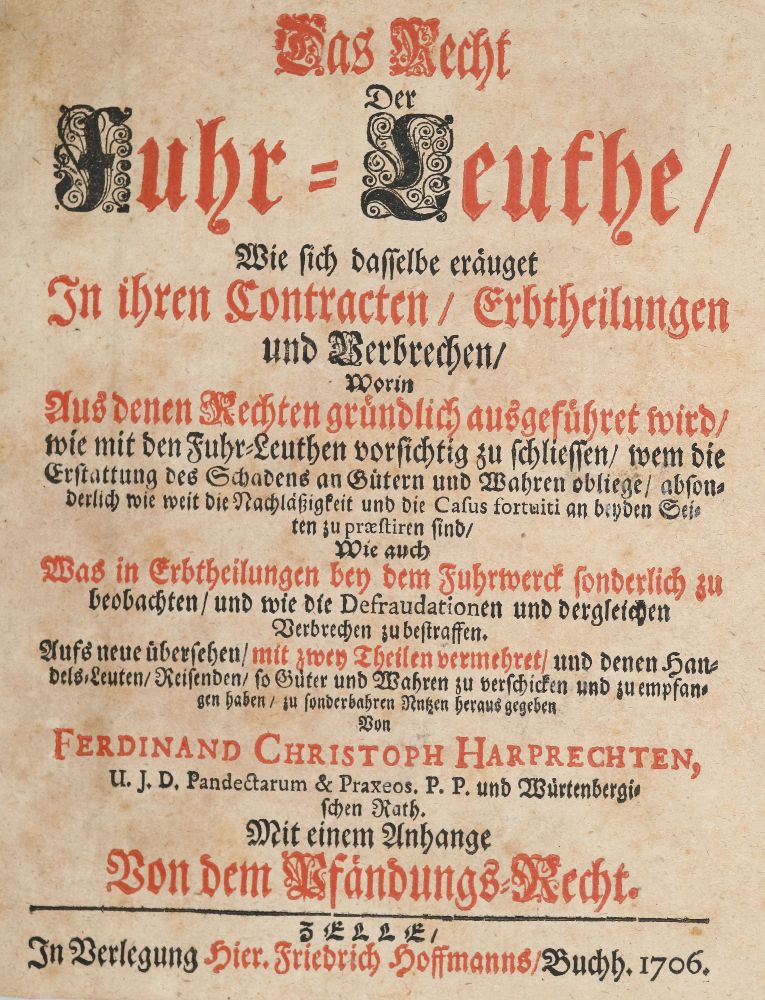 Das Recht
Der
Fuhr-Leuthe/
Wie sich dasselbe eräuget
In ihren Contracten/ Erbtheilungen
und Verbrechen/
Worin
Aus denen Rechten gründlich ausgeführet wird/
wie mit den Fuhr-Leuthen vorsichtig zu schliessen/ wem die
Erstattung des Schadens an Gütern und Wahren obliege/ abson-
derlich wie weit die Nachläßigkeit und die Casus fortuiti an beyden Sei-
ten zu præstiren sind/
Wie auch
Was in Erbtheilungen bey dem Fuhrwerck sonderlich zu
beobachten/ und wie die Defraudationen und dergleichen
Verbrechen zu bestraffen.
Aufs neue übersehen/ mit zwey Theilen vermehret/ und denen Han-
dels-Leuten/ Reisenden/ so Güter und Wahren zu verschicken und zu empfan-
gen haben/ zu sonderbahren Nutzen heraus gegeben
Von
FERDINAND CHRISTOPH HARPRECHTEN,
U. J. D. Pandectarum & Praxeos. P. P. und Würtenbergi-
schen Rath.
Mit einem Anhange
Von dem Pfändungs-Recht.
ZELLE/
In Verlegung Hier. Friedrich Hoffmanns/ Buchh. 1706.